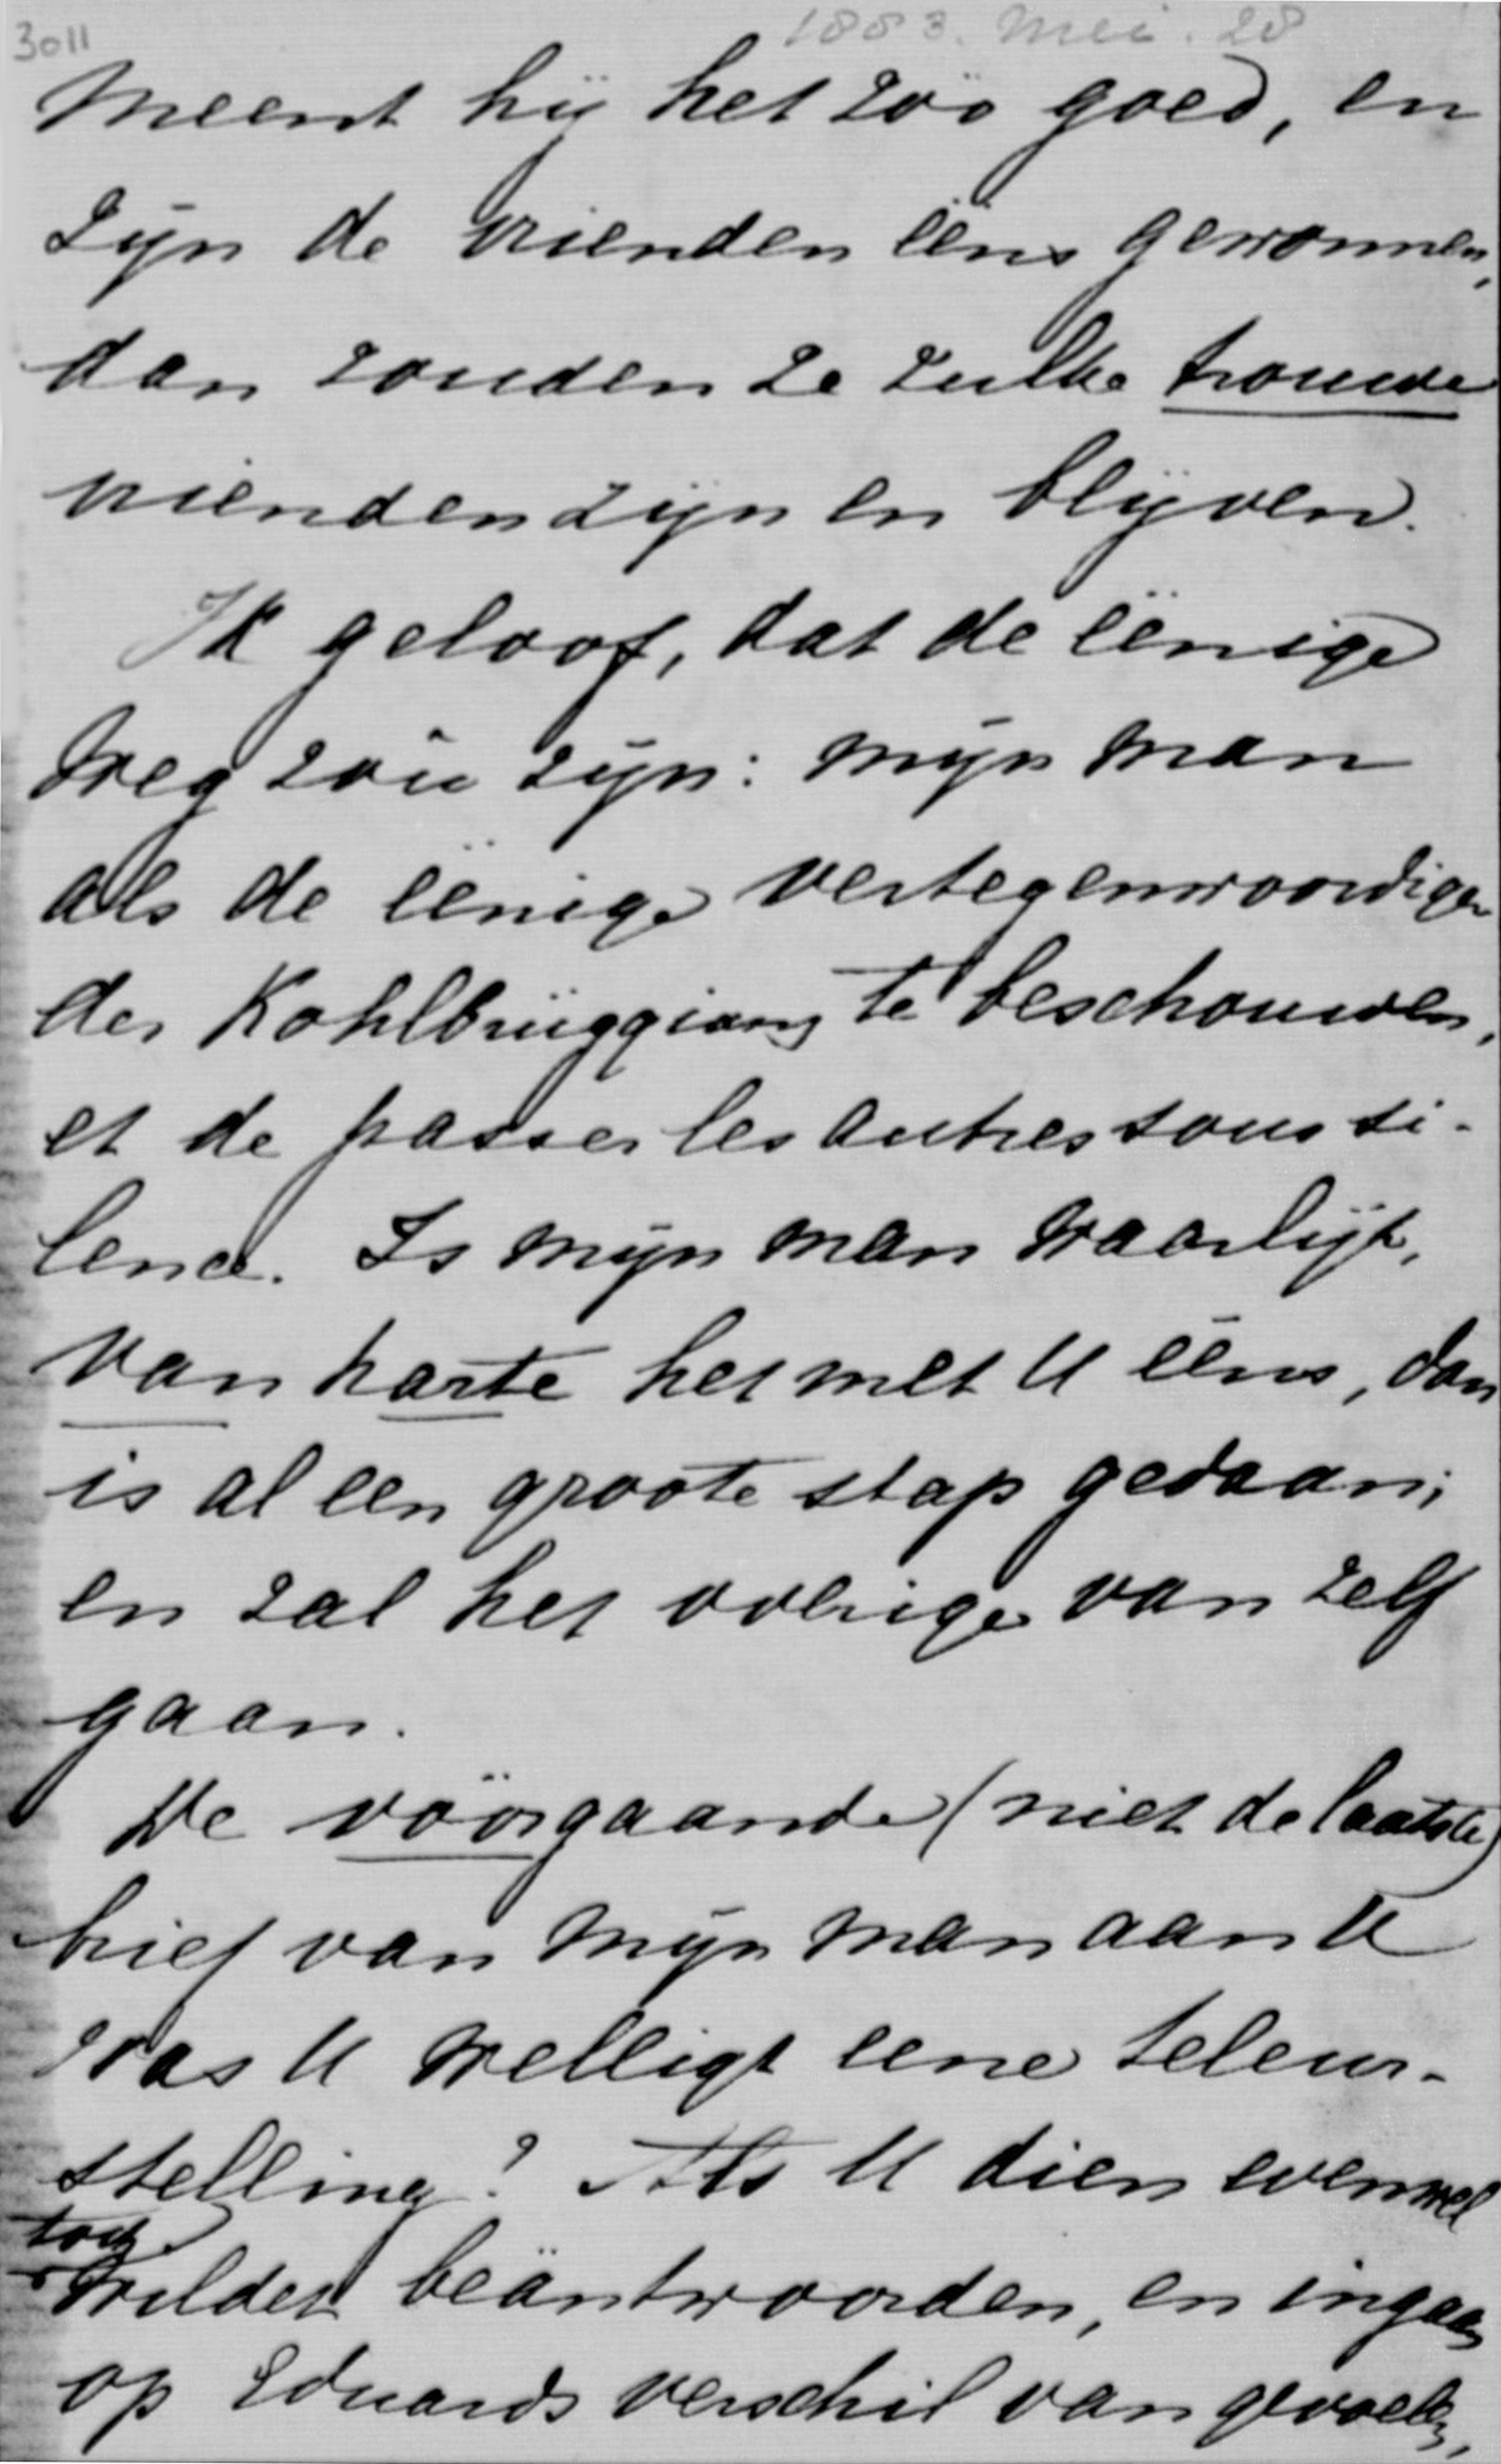 3011
1883. Mei. 28
Meent hij het zóó goed, en
zijn de vrienden ééns gewonnen,
dan zouden ze zulke trouwe
vrienden zijn en blijven.
Ik geloof, dat de éénige
weg zou zijn: mijn man
als de éénige vertegenwoordiger
der Kohlbrüggians te beschouwen,
et de passer les autres sous si-
lence. Is mijn man waarlijk,
van harte het met U eens, dan
is al een groote stap gedaan;
en zal het overige van zelf
gaan.
De vóórgaande (niet de laatste)
brief van mijn man aan U
was U welligt eene teleur-
stelling? Als U dien evenwel
toch
wildet beäntwoorden, en ingaan
op Eduards verschil van gevoelen,